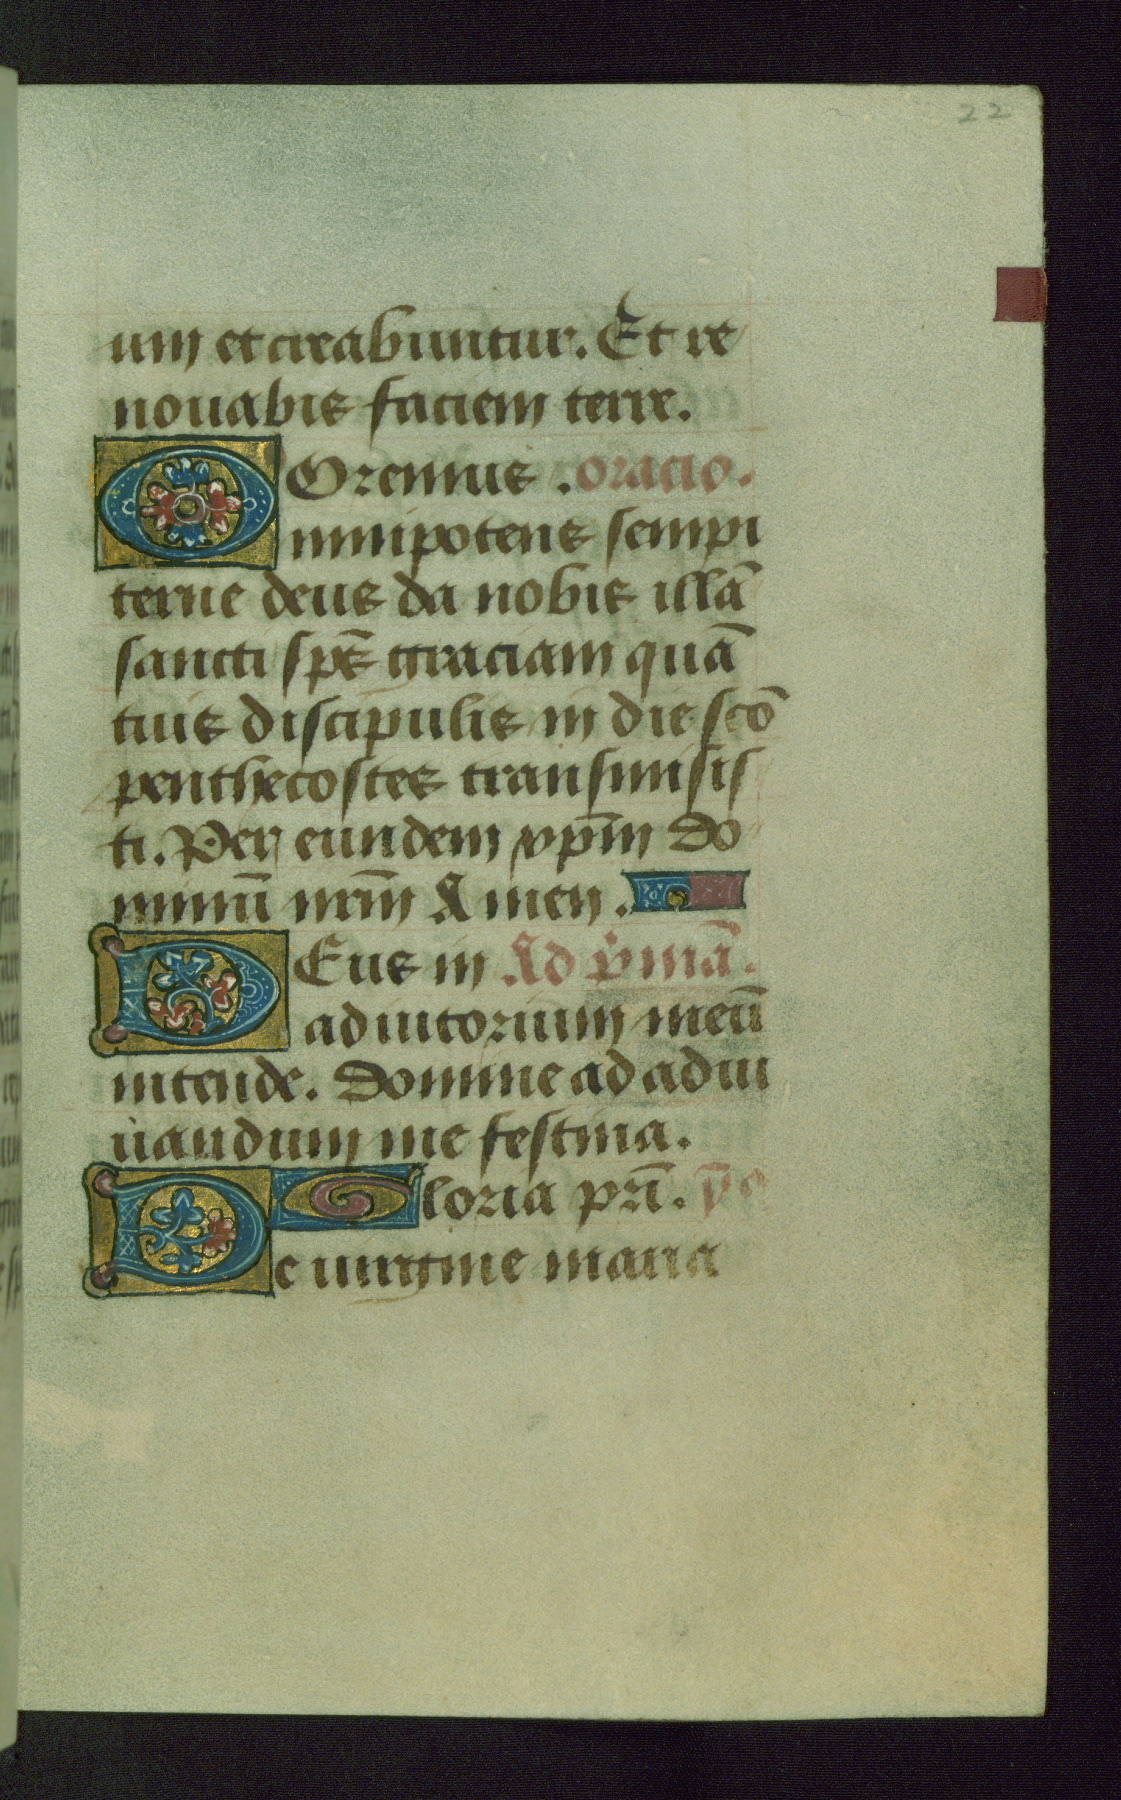 22
um et creabuntur. Et re
nouabis faciem terre.
Oremus . oracio.
Omnipotens sempi
terne deus da nobis illā
sancti sp̄s graciam quā
tuis discipulis in die scō
penthecostes transmisis
ti. Per eundem xp̄m do
minū nr̄m Amen.
DEus in Ad p̄mā.
adiutorium meū
intende. Domine ad adiu
uandum me festina.
Gloria pri̅.
De uirgine maria